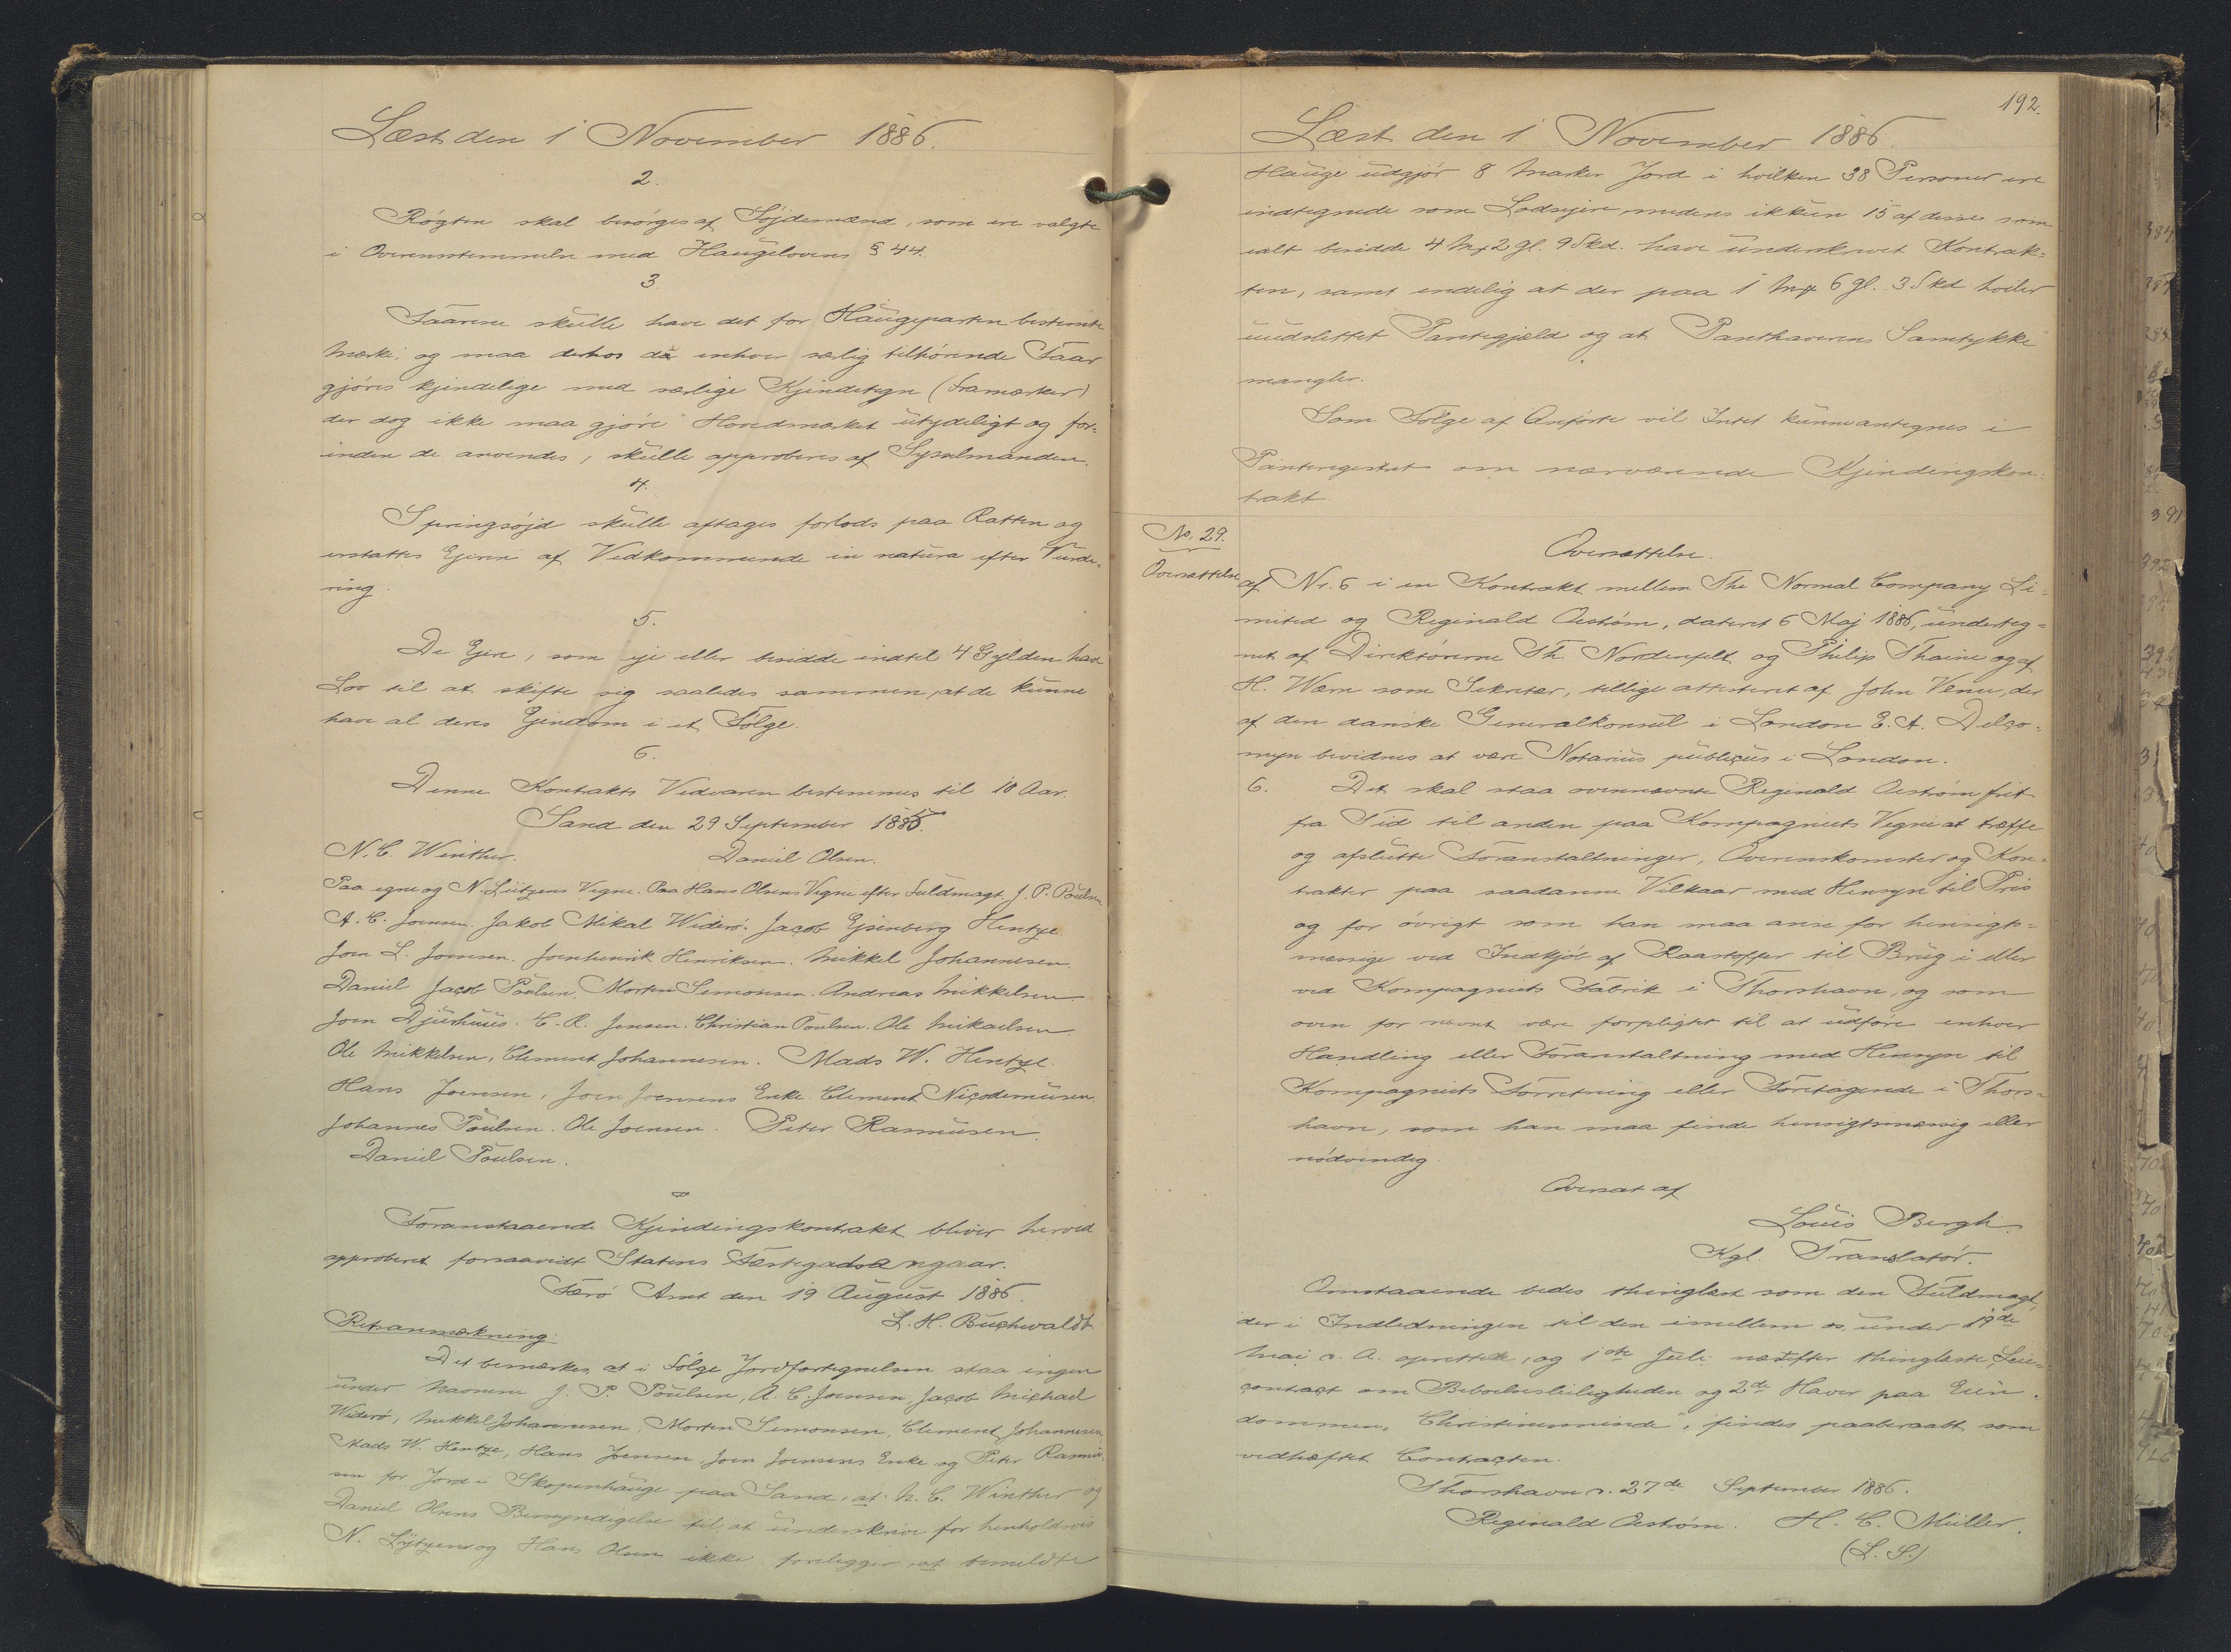 Læst den 1 November 1886.
2.
Røgten skal besørges af Søjdemænd, som ere valgte
i Overensstemmelse med Haugelovens § 44.
3.
Faarene skulle have det for Haugeparten bestemte
Mærke, og maa derhos da enhver særlig tilhørende Faar
gjøres kjendelige med særlige Kjendetegn (Framærker)
der dog ikke maa gjøre Hovedmæket utydeligt og for-
inden de anvendes, skulle approberes af Sysselmanden.
4.
Springsøjd skulle aftages forlods paa Ratten og
erstattes Ejeren af Vedkommende in natura efter Vurde-
ring.
5.
De Ejere, som eje eller besidde indtil 4 Gylden have
Lov til at skifte sig saaledes sammen, at de kunne
have al deres Ejendom i et Følge.
6.
Denne Kontrakts Vedvaren bestemmes til 10 Aar.
Sand den 29 September 1885.
N. C. Winther. Daniel Olsen.
Paa egne og N. Lützens Vegne. Paa Hans Olsens Vegne efter Fuldmagt. J. P. Poulsen
A. C. Joensen. Jakob Mikal Widerø. Jacob Ejsenberg Hentze.
Joen L. Joensen. Joenhenrik Henriksen. Mikkel Johannesen.
Daniel Jacob Poulsen. Morten Simonsen. Andreas Mikkelsen
Joen Djurhuus. C. R. Jensen. Christian Poulsen. Ole Mikaelsen
Ole Mikkelsen, Clement Johannesen. Mads W. Hentze.
Hans Joensen, Joen Joensens Enke. Clement Nicodemusen.
Johannes Poulsen. Ole Joensen. Peter Rasmusen.
Daniel Poulsen.
Foranstaaende Kjendingskontrakt bliver herved
approberet forsaavidt Statens Fæstegods angaar.
Færø Amt den 19 August 1886.
L. H. Buchwaldt
Retsanmærkning:
Det bemærkes at i Følge Jordfortegnelsen staa ingen
under Navnene J. P. Poulsen, A. C. Joensen, Jacob Michael
Widerø, Mikkel Johannesen, Morten Simonsen, Clement Johannesen
Mads W. Hentze, Hans Joensen, Joen Joensens Enke og Peter Rasmu-
sen for Jord i Skopenhauge paa Sand, at N. C. Winther og
Daniel Olsens Bemyndigelse til at underskrive for henholdsvis
N. Lützens og Hans Olsen ikke foreligger, at bemeldte
192.
Læst den 1 November 1886.
Hauge udgjør 8 Marker Jord i hvilken 38 Personer ere
indtegnede som Lodsejere medens ikkun 15 af disse som
ialt besidde 4 Mk 2 Gl. 9 Skd. have underskrevet Kontrak-
ten, samt endelig at der paa 1 Mk 6 Gl. 3 Skd hviler
uudslettet Pantegjæld og at Panthaverens Samtykke
mangler.
Som Følge af Anførte vil Intet kunne antegnes i
Panteregistret om nærværende Kjendingskon-
trakt.
No. 29.
Oversættelse
Oversættelse.
af Nr. 6 i en Kontrakt mellem The Normal Company Li-
mited og Reginald Oestrøm, dateret 6 Maj 1886, underteg-
net af Direktørerne Th. Nordenfelt og Philip Thaine og af
H. Wærn som Sekretær, tillige attesteret af John Venn, der
af den danske Generalkonsul i London E. A. Delco-
myn bevidnes at være Notarius publicus i London.
6. Det skal staa ovennævnte Reginald Oestrøm frit
fra Tid til anden paa Kompagniets Vegne at træffe
og afslutte Foranstaltninger, Overenskomster og Kon-
trakter paa saadanne Vilkaar med Hensyn til Pris
og for øvrigt som han maa anse for hensigts-
mæssige ved Indkjøb af Raastoffer til Brug i eller
ved Kompagniets Fabrik i Thorshavn, og som
oven for nævnt være forpligtet til at udføre enhver
Handling eller Foranstaltning med Hensyn til
Kompagniets Forretning eller Foretagende i Thors-
havn, som han maa finde hensigtsmæssig eller
nødvendig.
Oversat af
Louis Bergh
Kgl. Translatør.
Omstaaende bedes thinglæst som den Fuldmagt,
der i Indledningen til den imellem os under 19de
Mai d. A. oprettede, og 1ste Juli næstefter thinglæste, Leie-
contract om Beboelsesleiligheden og 2de Haver paa Eien-
dommen "Christinesminde", findes paaberaabt som
vedhæftet Contracten.
Thorshavn d. 27de September 1886.
Reginald Oestrøm. H. C. Müller.
(L. S.)